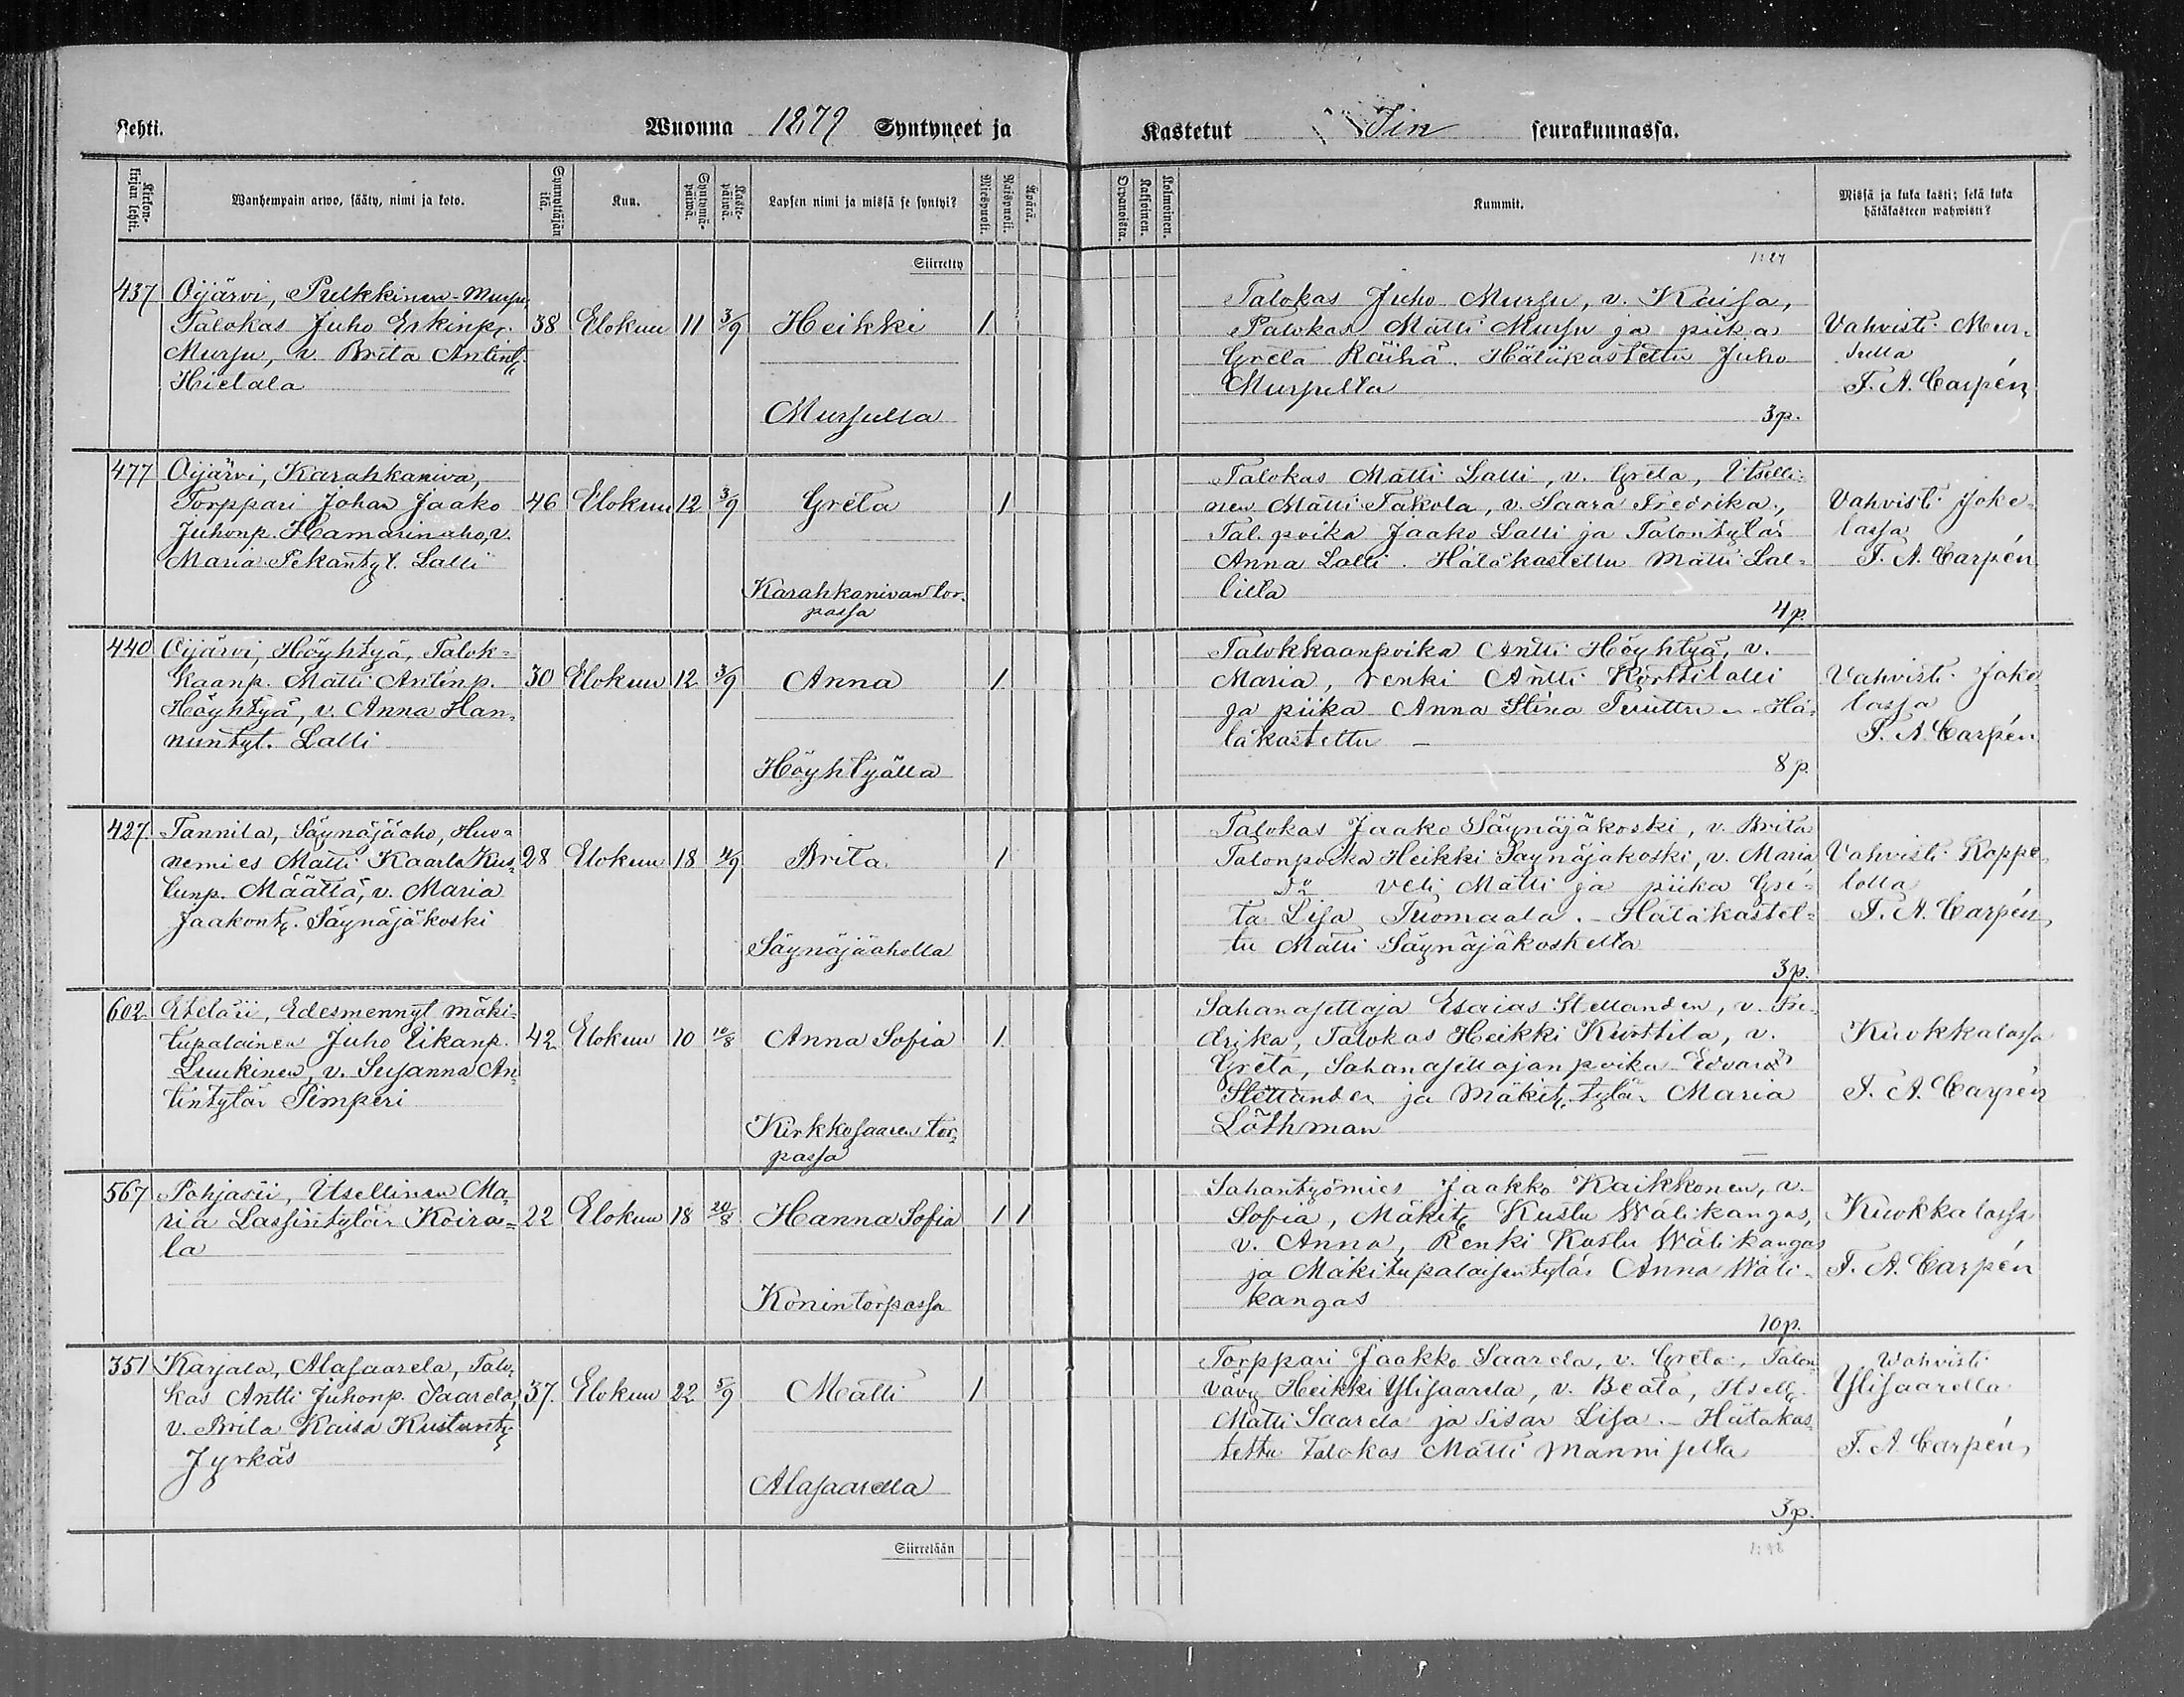 Lehti. Wuonna 1879 Syntyneet ja Kastetut Iin seurakunnassa.
Kirkonkirjan lehti. Wanhempain arwo, sääty, nimi ja koto. Synnyttäjän ikä. Kuu. Syntymäpäiwä. Kastepäiwä. Lapsen nimi ja missä se syntyi? Miespuoli. Waimopuoli. Äpärä.
Kaksoinen. Kolmoinen. Kummit. Missä ja kuka kasti; sekä kuka hätäkasteen wahwisti?
Siirretty
437 Oijärvi, Pulkkinen-Mursu,
Talokas Juho Erkinp. 38 Elokuu 11 3/9 Heikki 1
Mursu, v. Brita Antint.
Hietala
Mursulla
Talokas Juho Mursu, v. Kaisa,
Talokas Matti Mursu ja piika
Greta Räihä. Hätäkastettu Juho
Mursulta
3p.
Vahvisti Mur-
sulla
F. A. Carpén
477 Oijärvi, Karahkaniva,
Torppari Johan Jaako 46 Elokuu 12 3/9 Greta 1
Juhonp. Hamarinaho, v.
Maria Pekantyt. Lalli
Karahkanivan tor-
passa
Talokas Matti Lalli, v. Greta, Itselli-
nen Matti Takola, v. Saara Fredrika,
Tal. poika Jaako Lalli ja Talontytär
Anna Lalli. Hätäkastettu Matti Lal-
lilla
4p.
Vahvisti Joke-
lassa
F. A. Carpén
440 Oijärvi, Höyhtyä, Talok-
kaanp. Matti Antinp. 30 Elokuu 12 3/9 Anna 1
Höyhtyä, v. Anna Han-
nuntyt. Lalli
Höyhtyällä
Talokkaanpoika Antti Höyhtyä, v.
Maria, renki Antti Korttilalli
ja piika Anna Stina Tuuttu - Hä-
täkastettu -
8p.
Vahvisti Joke-
lassa
F. A. Carpén
427. Tannila, Säynäjäaho, Huo-
nemies Matti Kaarlo Kus- 28 Elokuu 18 4/9 Brita 1
tunp. Määttä, v. Maria
Jaakont. Säynäjäkoski
Säynäjäaholla
Talokas Jaako Säynäjäkoski, v. Brita
Talonpoika Heikki Säynäjäkoski, v. Maria
do veli Matti ja piika Gre-
ta Lisa Tuomaala. - Hätäkastet-
tu Matti Säynäjäkoskelta
3p.
Vahvisti Koppe-
lolla
F. A. Carpén
602 Eteläii, Edesmennyt mäki-
tupalainen Juho Eikanp. 42 Elokuu 10 10/8 Anna Sofia 1
Luukinen, v. Susanna An-
tintytär Pimperi
Kirkkosaaren tor-
passa
Sahanasettaja Esaias Stellander, v. Fre-
drika, Talokas Heikki Kurttila, v.
Greta, Sahanasettajanpoika Edvard
Stellander ja Mäkit. tytär Maria
Löthman
Kuokkalassa
F. A. Carpén
567 Pohjasii, Itsellinen Ma-
ria Lassintytär Koira- 22 Elokuu 18 20/8 Hanna Sofia 1 1
la
Konin torpassa
Sahantyömies Jaakko Kaikkonen, v.
Sofia, Mäkit. Kustu Wälikangas,
v. Anna, Renki Kustu Wälikangas
ja Mäkitupalaisentytär Anna Wäli-
kangas
10p.
Kuokkalassa
F. A. Carpén
351 Karjala, Alasaarela, Talo-
kas Antti Juhonp. Saarela, 37. Elokuu 22 5/9 Matti 1
v. Brita Kaisa Kustunt.
Jyrkäs
Alasaarella
Torppari Jaakko Saarela, v. Greta, Talon-
vävy Heikki Ylisaarela, v. Beata, Itsell.
Matti Saarela ja sisar Lisa. - Hätäkas-
tettu Talokas Matti Manniselta
3p.
Wahvisti
Ylisaarella
F. A. Carpén
Siirretään